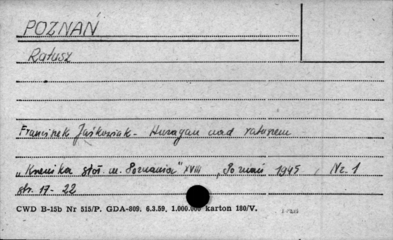 POZNAŃ
Ratusz
Franciszek Jaśkowiak - Huragan nad ratuszem
„Kronika stoł. m. Poznania" XVIII, Poznań 1945, Nr. 1
str. 17-22
CWD B-15b Nr 515/P. GDA-809. 6.3.59. 1.000.000 karton 180/V.